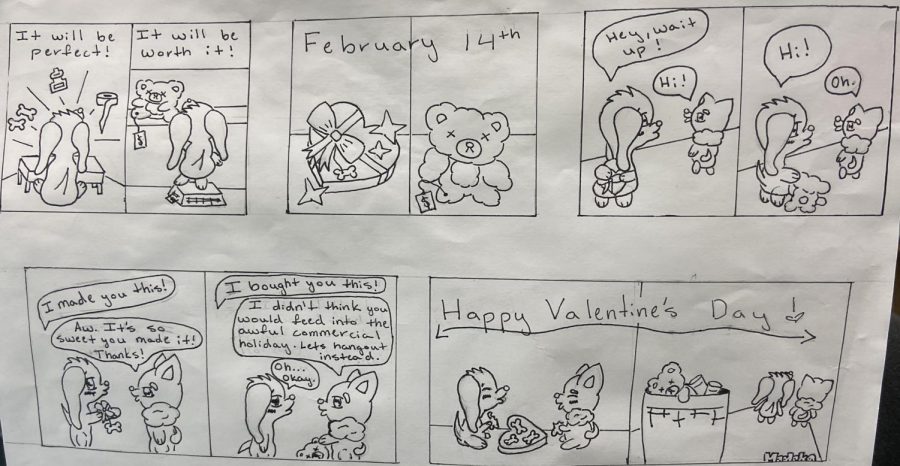 It will be
perfect!
It will be
worth it!
R
$
February 14th
R
$
Hey, wait
up!
Hi!
Hi!
Oh.
I made you this!
Aw. It's so
sweet you made it!
Thanks!
I bought you this!
I didn't think you
would feed into the
awful commercial
holiday. Lets hangout
instead.
Oh...
Okay.
Happy Valentine's Day!